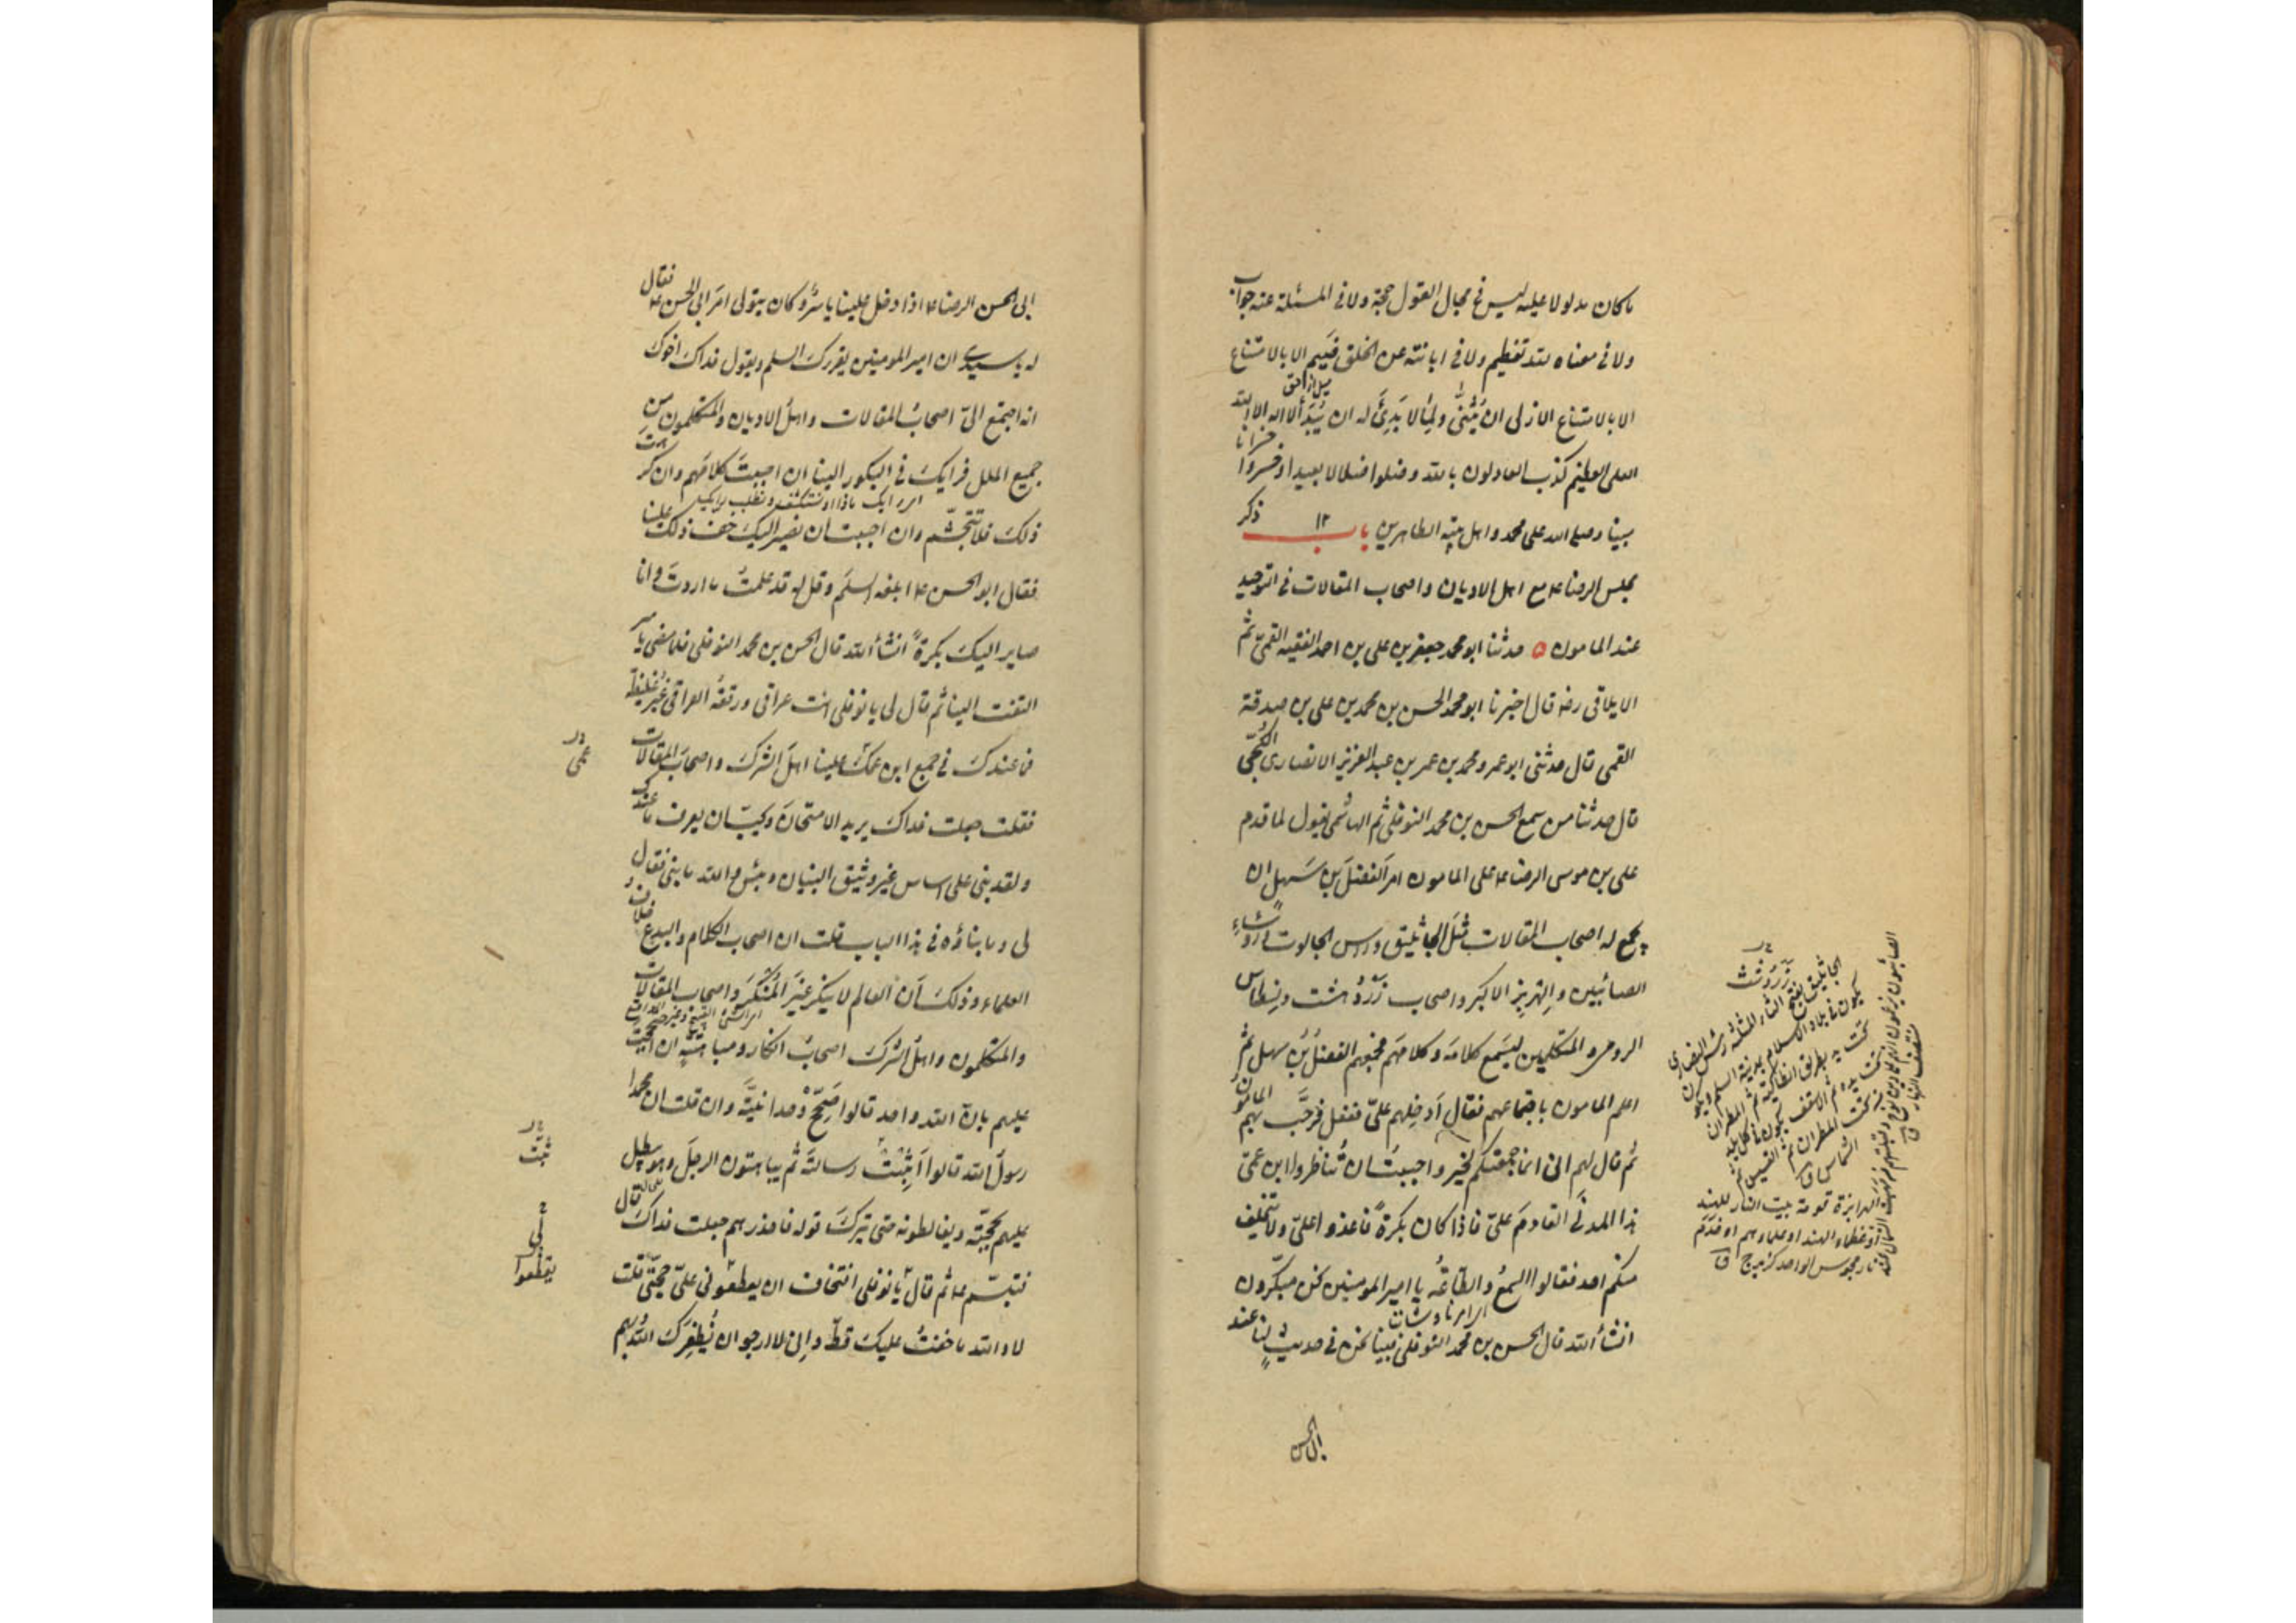 ما كان مدلولا عليه ليس في مجال القول حجة ولا في المسئلة عنه جواب
ولا في معناه لله تعظيم ولا في ابانته عن الخلق ضَيم الا بالامتناع
الا بالامتناع الازلى ان يُثنّى ولِما لا بَدِئَ له ان يُبدَأ لا اله الا الله
العلى العظيم كذب العادلون بالله وضلوا ضلالا بعيدا وخسروا
خسرانا
مبينا وصلى الله على محمد واهل بيته الطاهرين باب ١٢ ذكر
مجلس الرضا ع مع اهل الاديان واصحاب المقالات في التوحيد
عند المامون ه حدثنا ابو محمد جعفر بن على بن احمد الفقيه القمىّ ثم
الايلاقى رضه قال اخبرنا ابو محمد الحسن بن محمد بن على بن صدقة
القمى قال حدثنى ابو عمرو محمد بن عمر بن عبد العزيز الانصارى الكجّى
قال حدثنا من سمع الحسن بن محمد النوفلى ثم الهاشمى يقول لما قدم
على بن موسى الرضا ع على المامون امرَ الفضلَ بن سَهل ان
يجمع له اصحاب المقالات مثلَ الجاثليق وراس الجالوت ورُؤساءِ
الصابئين والهِربِذِ الاكبر واصحاب زَرْدُهشت ونِسطاس
الرومى والمتكلمين ليسمع كلامَه وكلامَهم فجمعهم الفضلُ بنُ سهل ثم
اعلم المامون باجتماعهم فقال اَدخِلهم علىّ ففعل فرحّب بهم المامون
ثم قال لهم انى انما جمعتكم لخير واحببتُ ان تُناظروا ابن عمىّ
هذا المدنىَّ القادمَ علىّ فاذا كان بكرةً فاغدوا علىّ ولا يتخلف
منكم احد فقالوا السمعُ والطاعَةُ يا امير المومنين نحن مبكّرون
انشأ الله قال الحسن بن محمد النوفلى فبينا نحن في حديث لنا عند
ابى الحسن
زَرَدُشت
الجاثليق بفتح الثاء المثلثة رئيس النصارى
يكون في بلاد الاسلام بمدينة السلم ويكون
تحت يد بطريق انطاكية ثم المطران
تحت يده ثم الاسقف يكون في كل بلد
من تحت المطران ثم القسيس ثم
الشماس ق
الهرابذة قومة بيت النار للهند
او عظماء الهند او علماؤهم او خدم
نار مجوس الواحد كزبرج ق
الصابئون يزعمون انهم على دين نوح ع وقبلتهم من مهب الشمال عند
منتصف النهار ق
ابى الحسن الرضا ع اذا دخل علينا ياسرٌ وكان يتولى امرَ ابى الحسن ع فقال
له يا سيدى ان امير المومنين يقرئك السلم ويقول فداك اخوك
انه اجتمع الىّ اصحابُ المقالات واهلُ الاديان والمتكلمون من
جميع الملل فرايك في البكور الينا ان احببتَ كلامَهم وان كرهتَ
ذلك فلا تتجشّم وان احببت ان نصير اليك خفّ ذلك علينا
فقال ابو الحسن ع ابلغه السلمَ وقل له قد علمتُ ما اردتَ وانا
صاير اليك بكرةً انشأ الله قال الحسن بن محمد النوفلى فلما مضى ياسر
التفت الينا ثم قال لى يا نوفلى انت عراقى ورقةُ العراقى غيرُ غليظة
فما عندك في جمع ابن عمّك علينا اهلَ الشرك واصحابَ المقالات
فقلت جعلت فداك يريد الامتحانَ ويحبّ ان يعرف ما عندك
ولقد بنى على اساس غير وثيق البنيان وبئس والله ما بنى فقال
لى وما بناؤه في هذا الباب قلت ان اصحاب الكلام والبدع خلاف
العلماء وذلك اَن العالم لا ينكر غيرَ المُنكَر واصحاب المقالات
والمتكلمون واهلُ الشرك اصحابُ انكار ومباهتةٍ ان احتججت
عليهم بان الله واحد قالوا صَحِّحْ وَحدانيّتَه وان قلت ان محمدا
رسولَ الله قالوا اَثبِتْ رسالتَه ثم يباهتون الرجلَ وهو يبطل
عليهم بحجّته ويغالطونه حتى يترك قوله فاحذرهم جعلت فداك قال
فتبسّم ع ثم قال يا نوفلى افتخاف ان يقطعونى علىّ حجّتى قلت
لا والله ما خفتُ عليك قطّ وانى لارجو ان يُظفِرَك اللهُ بهم
عمى
ثبّت
يقطعوا